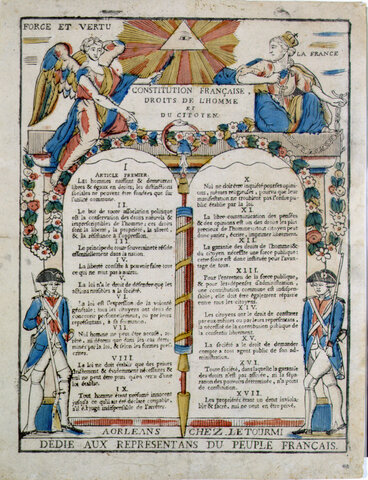 FORCE ET VERTU
LA FRANCE
CONSTITUTION FRANÇAISE,
DROITS DE L'HOMME
ET
DU CITOYEN.
I
ARTICLE PREMIER.
Les hommes naissent & demeurent
libres & égaux en droits; les distinctions
sociales ne peuvent être fondées que sur
l'utilité commune.
II.
Le but de toute association politique
est la conservation des droits naturels &
imprescriptibles de l'homme; ces droits
sont la liberté, la propriété, la sûreté,
& la résistance à l'oppression.
III.
Le principe de toute souveraineté réside
essentiellement dans la nation.
IV.
La liberté consiste à pouvoir faire tout
ce qui ne nuit pas à autrui.
V.
La loi n'a le droit de défendre que les
actions nuisibles à la société.
VI
La loi est l'expression de la volonté
générale; tous les citoyens ont droit de
concourir personnellement, ou par leurs
représentans, à sa formation.
VII
Nul homme ne peut être accusé, arrêté,
ni détenu que dans les cas déterminés
par la loi, & selon les formes
VIII
La loi ne doit établir que des peines
strictement & évidemment nécessaires &
nul ne peut être puni qu'en vertu d'une
loi établie.
IX
Tout homme étant présumé innocent
jusqu'à ce qu'il ait été déclaré coupable,
s'il est jugé indispensable de l'arrêter.
X
Nul ne doit être inquiété pour ses opinions,
mêmes religieuses, pourvu que leur
manifestation ne troublent pas l'ordre public
établie par la loi.
XI.
La libre communication des pensées
& des opinions est un des droits les plus
précieux de l'homme; tout citoyen peut
donc parler, écrire, imprimer librement.
XII.
La garantie des droits de l'homme & du
citoyen nécessite une force publique;
cette force est donc instituée pour l'avantage
de tous.
XIII.
Pour l'entretien de la force publique,
& pour les dépenses d'administration,
une contribution commune est indispensable;
elle doit être également répartie
entre tous les citoyens.
XIV.
Les citoyens ont le droit de constater
par eux-mêmes ou par leurs représentans,
la nécessité de la contribution publique de
la consentir librement.
XV.
La société a le droit de demander
compte à tout agent public de son administration.
XVI.
Toute société, dans laquelle la garantie
des droits n'est pas assurée, ni la séparation
des pouvoirs déterminée, n'a point
de constitution.
XVII.
Les propriétés étant un droit inviolable
& sacré, nul ne peut en être privé.
A ORLEANS CHEZ LETOURMI
DÉDIÉ AUX REPRESENTANS DU PEUPLE FRANÇAIS.